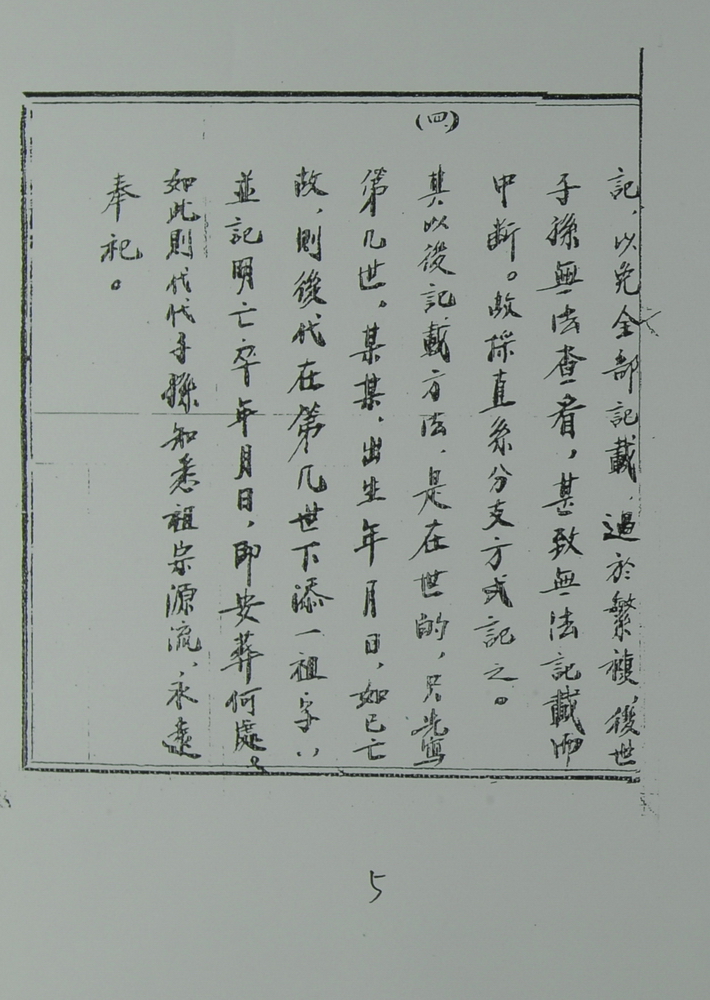 記，以免全部記載，過於繁複，後世
子孫無法查看，甚致無法記載而
中斷。故採直系分支方式記之。
(四)
其以後記載方法，是在世的，只先寫
第几世，某某，出生年月日，如已亡
故，則後代在第几世下添一祖字，
並記明亡卒年月日，即安葬何處。
如此則代代子孫知悉祖宗源流，永遠
奉祀。
5